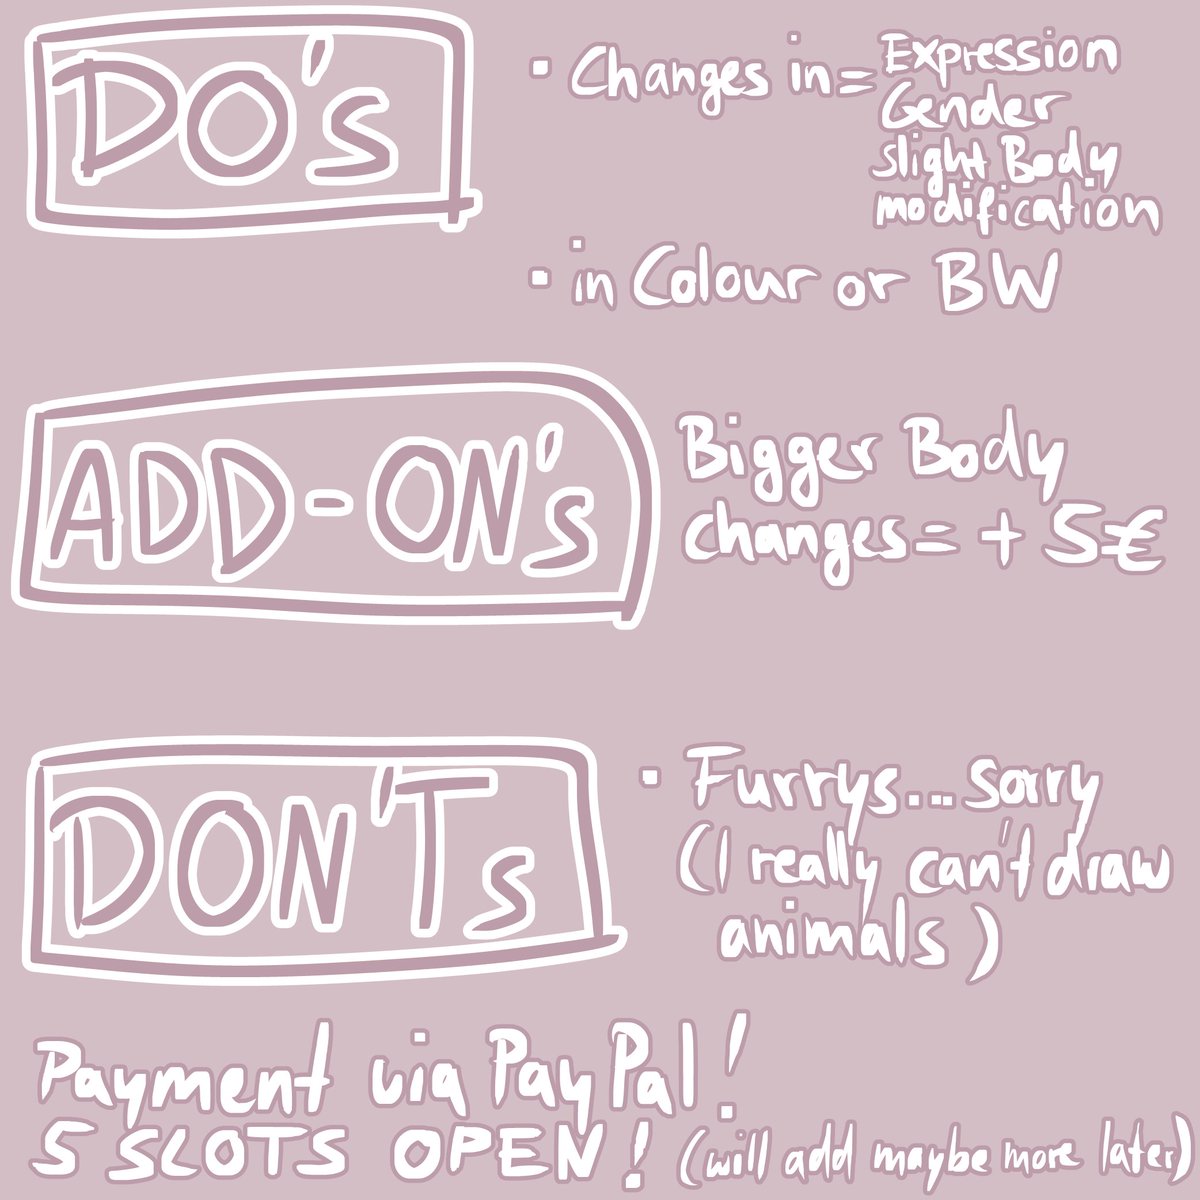 DO's
• Changes in = Expression
Gender
slight Body
modification
• in Colour or BW
ADD-ON's
Bigger Body
changes = + 5€
DON'Ts
• Furrys... sorry
(I really can't draw
animals)
Payment via PayPal!
5 SLOTS OPEN! (will add maybe more later)